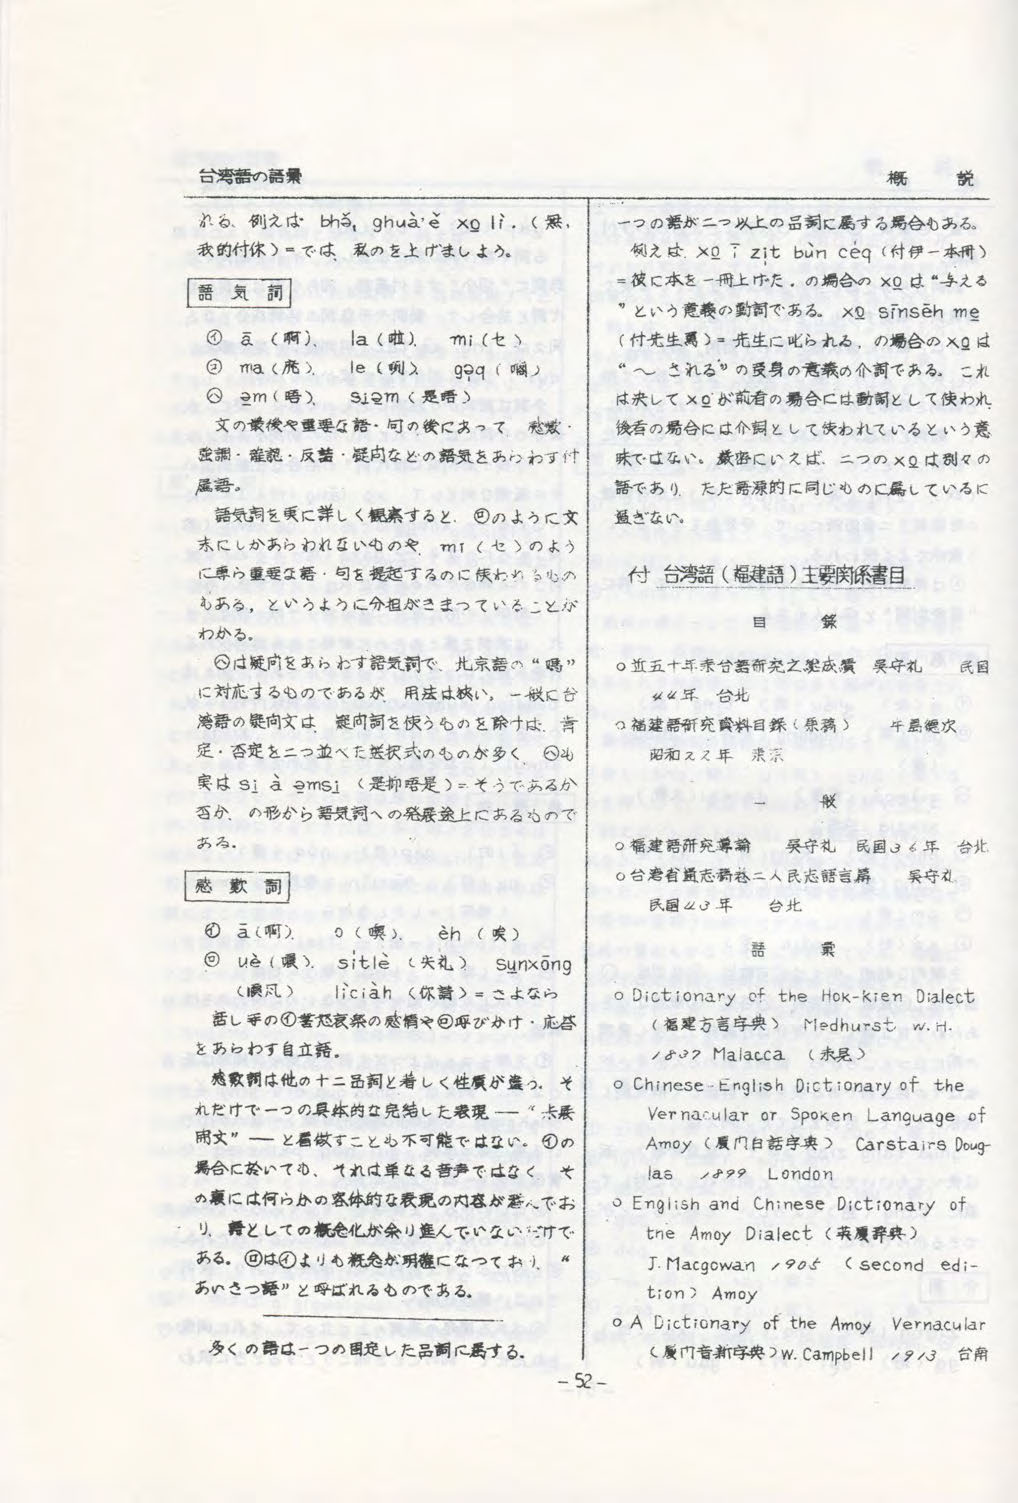 台湾語の語彙
概 説
れる、例えば bhə̌, ghuà'ě xo̲ lì.(無,
我的付休)=では、私のを上げましょう。
語 気 詞
㋑ ā(啊)、 la(啦)、 mi(セ)
㋺ ma(麽)、 le(咧)、
㋩ ə̲m(唔)、 siə̲m(是唔)
文の最後や重要な語・句の後にあって、感嘆・
強調・確認・反詰・疑問などの語気をあらわす付
属語。
語気詞を更に詳しく観察すると、㋺のように文
末にしかあらわれないものや、mi(セ)のよう
に専ら重要な語・句を提起するのに使われるもの
もある,というように分担がきまっていることが
わかる。
㋩は疑問をあらわす語気詞で、北京語の“嗎”
に対応するものであるが、用法は狭い。一般に台
湾語の疑問文は、疑問詞を使うものを除けば、肯
定・否定を二つ並べた選択式のものが多く、㋩も
実は si̲ à ə̲msi̲ (是抑唔是)=そうであるか
否か、の形から語気詞への発展途上にあるもので
ある。
感 歎 詞
㋑ ā(啊)、 o(噢)、 èh(唉)
㋺ uè(喂)、 sìtlè(失礼) su̲nxōng
(順风) lìciàh(你請)=さよなら
話し手の㋑喜怒哀楽の感情や㋺呼びかけ・応答
をあらわす自立語。
感歎詞は他の十二品詞と著しく性質が違う。そ
れだけで一つの具体的な完結した表現 ——“未展
開文”—— と看做すことも不可能ではない。㋑の
場合に於いても、それは単なる音声ではなく、そ
の裏には何らかの客体的な表現の内容が潜んでお
り、語としての概念化が余り進んでいないだけで
ある。㋺は㋑よりも概念が明確になっており、“
あいさつ語”と呼ばれるものである。
多くの語は一つの固定した品詞に属する。
一つの語が二つ以上の品詞に属する場合もある。
例えば、xo̲ ī zi̍t bùn céq(付伊一本冊)
=彼に本を一冊上げた。の場合の xo̲ は“与える
”という意義の動詞である。xo̲ sīnsēh me̲
(付先生罵)=先生に叱られる、の場合のxo̲は
“〜 される”の受身の意義の介詞である。これ
は決して xo̲ が前者の場合には動詞として使われ、
後者の場合には介詞として使われているという意
味ではない。厳密にいえば、二つの xo̲ は別々の
語であり、ただ語源的に同じものに属しているに
過ぎない。
付 台湾語(福建語)主要関係書目
目 録
○近五十年来台語研究之総成績 吳守礼 民国
44年 台北
○福建語研究資料目録(原稿) 牛島徳次
昭和22年 東京
一 般
○福建語研究導論 吳守礼 民国36年 台北
○台湾省通志稿巻二人民志語言篇 吳守礼
民国43年 台北
語 彙
○Dictionary of the Hok-kien Dialect
(福建方言字典) Medhurst W.H.
1837 Malacca (未見)
○Chinese-English Dictionary of the
Vernacular or Spoken Language of
Amoy(厦门白話字典) Carstairs Doug-
las 1899 London
○English and Chinese Dictionary of
the Amoy Dialect(英厦辞典)
J.Macgowan 1905 (second edi-
tion) Amoy
○A Dictionary of the Amoy Vernacular
(厦门音新字典)W.Campbell 1913 台南
-52-